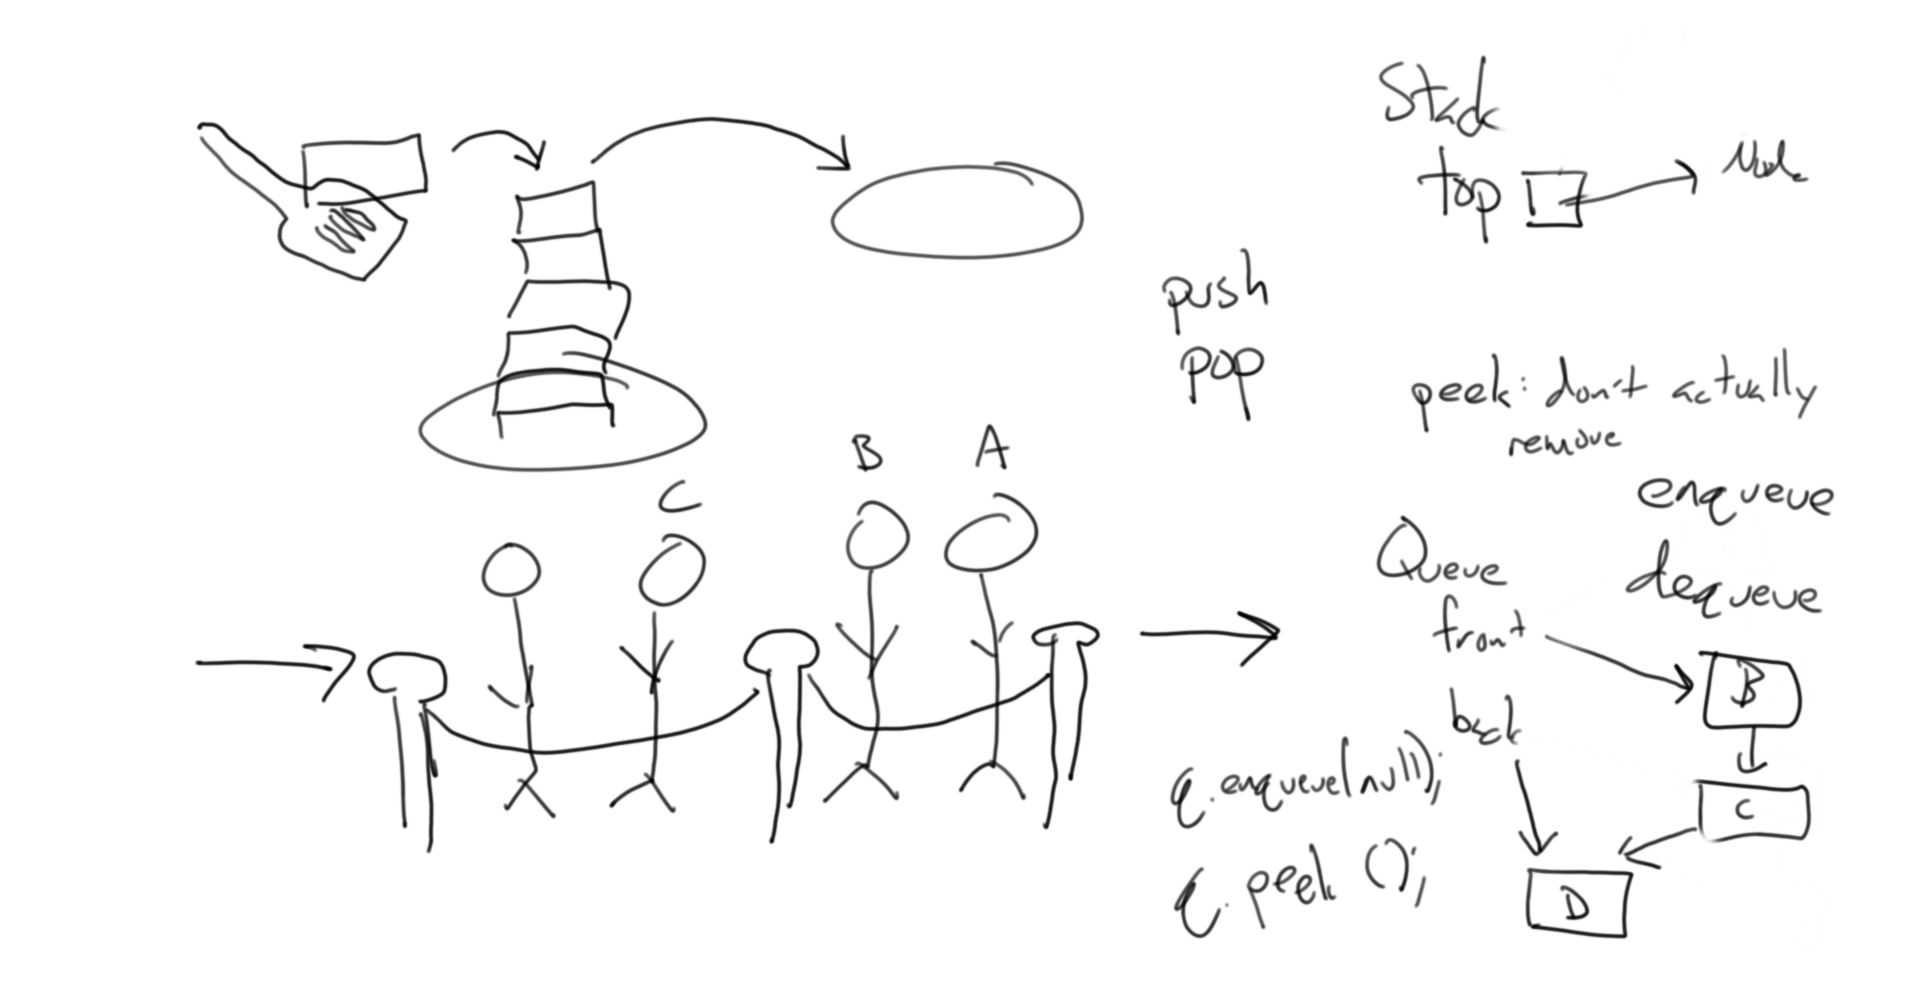 Stack
top
Node
push
pop
peek: don't actually
remove
B
A
C
enqueue
dequeue
Queue
front
back
B
C
D
q.enqueue(null);
q.peek();